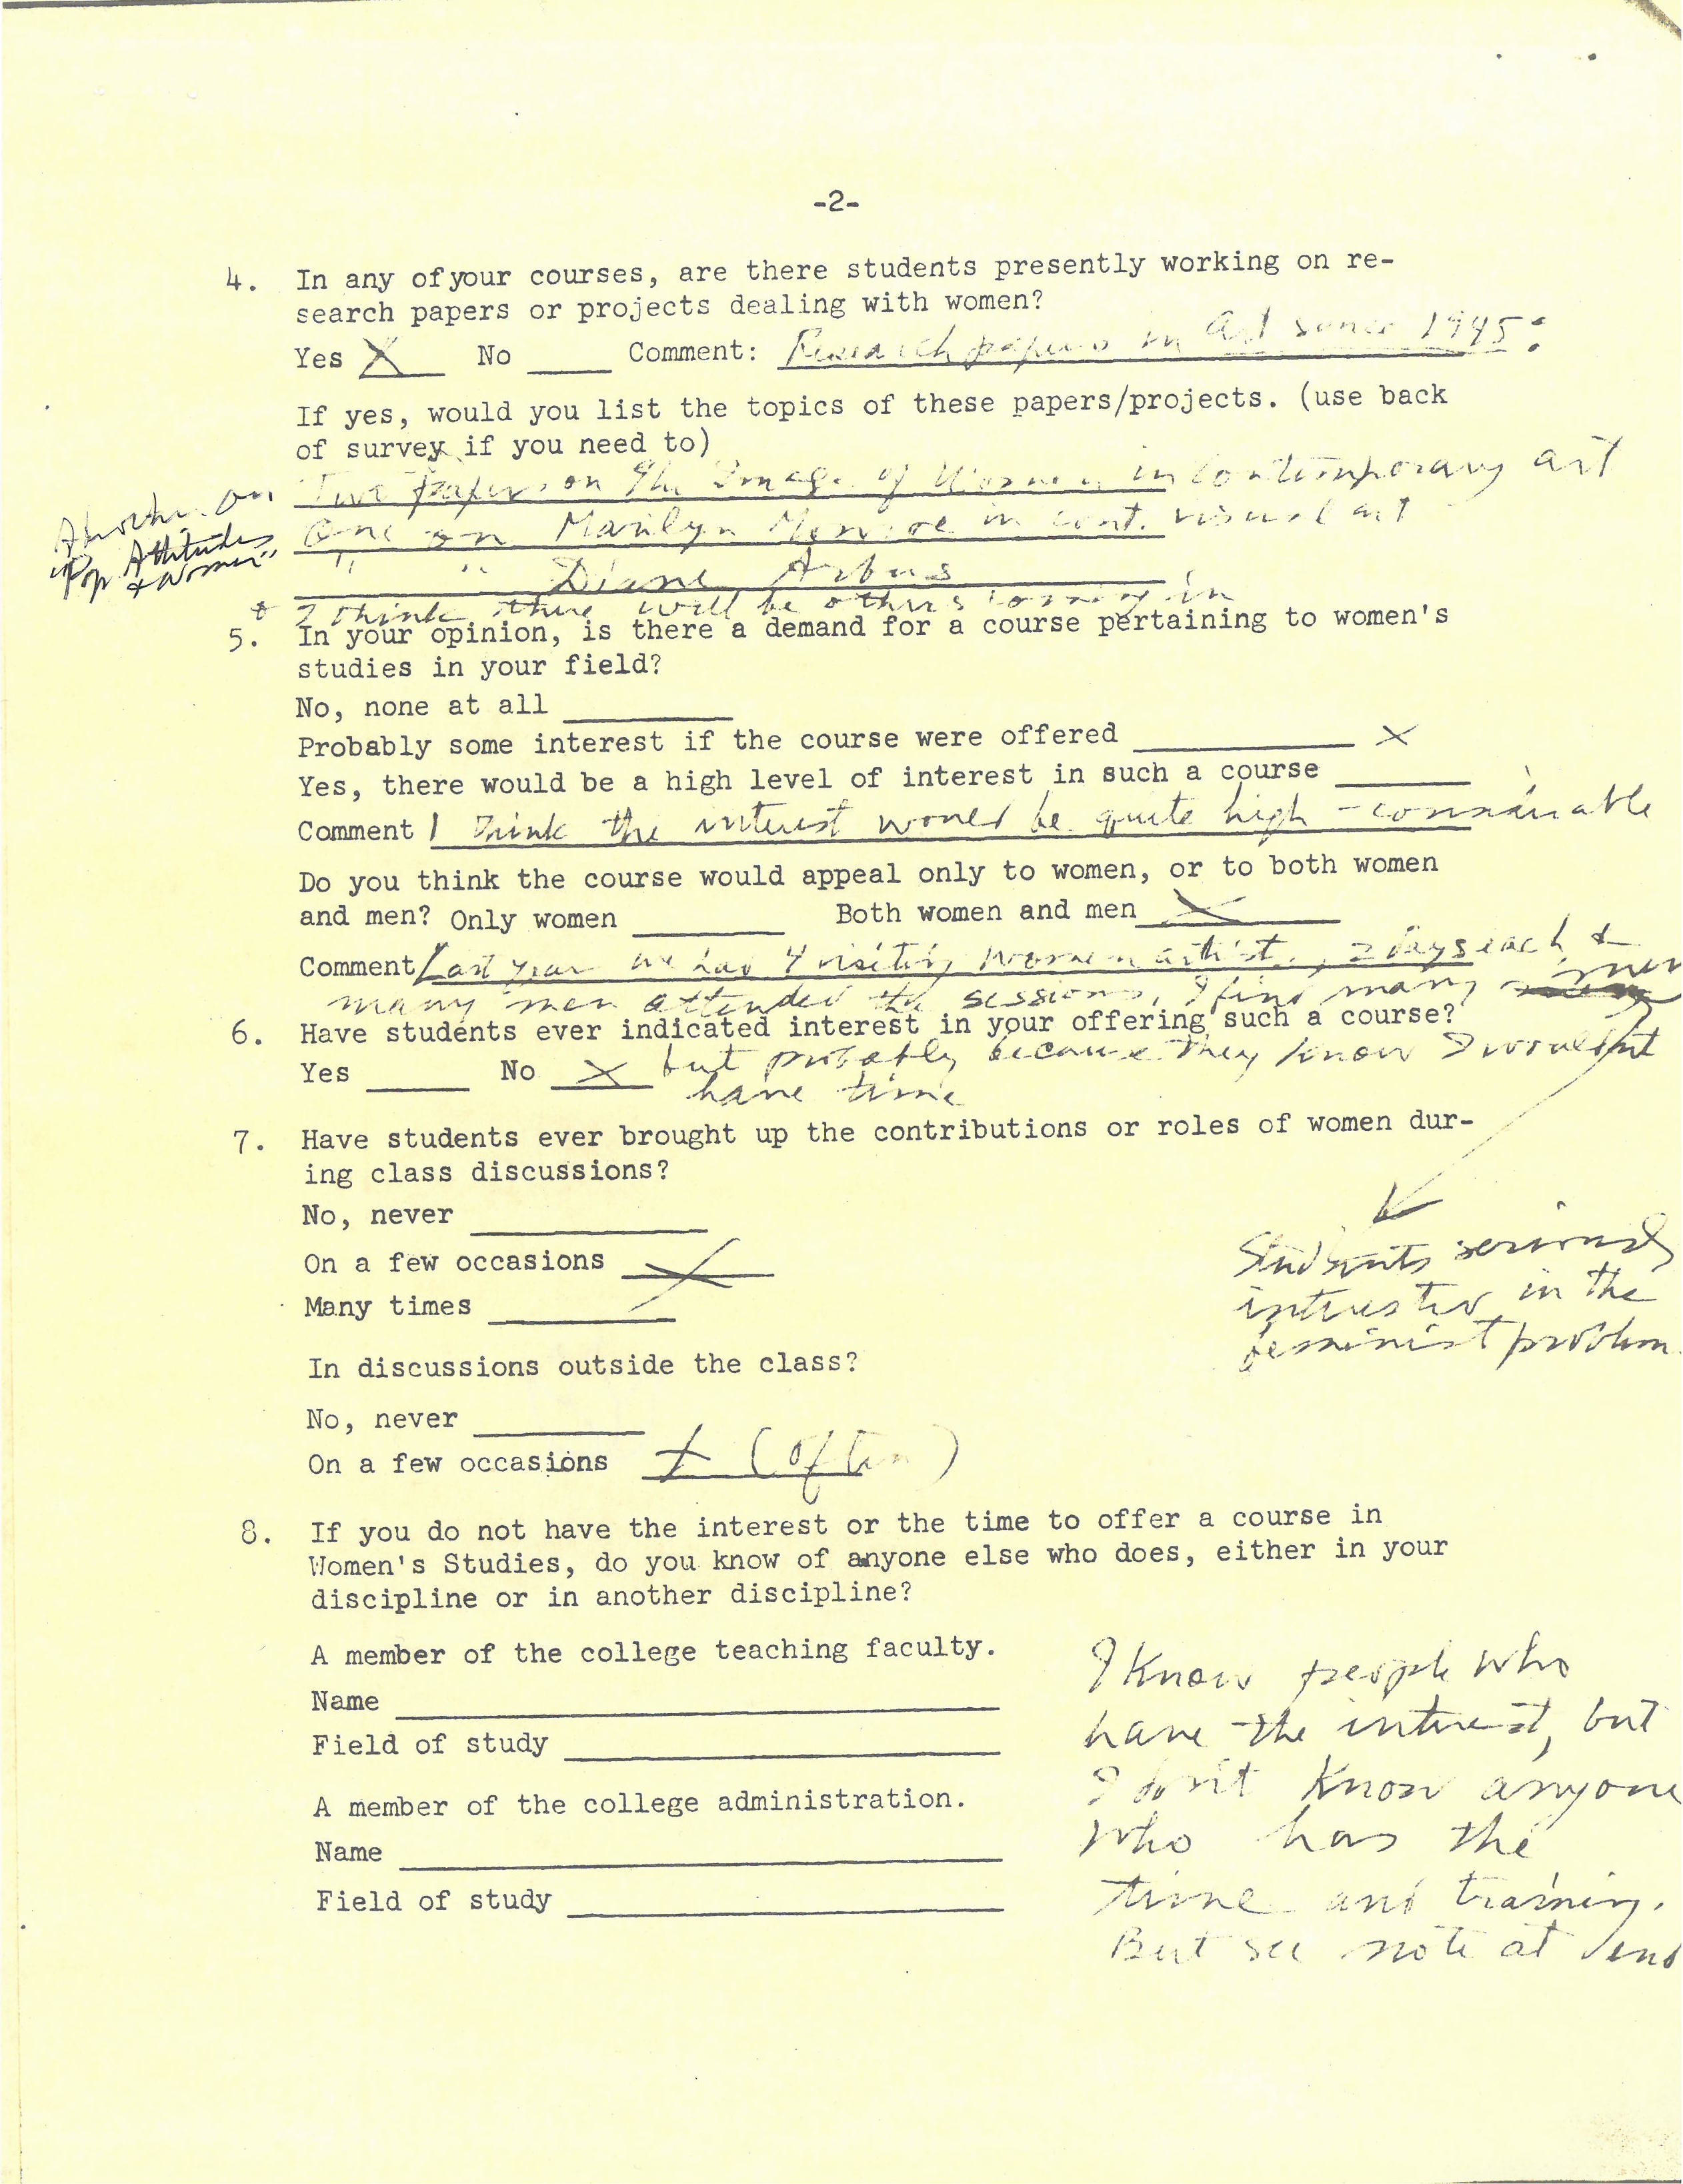 -2-
4. In any of your courses, are there students presently working on re-
search papers or projects dealing with women?
Yes X No ____ Comment: Research papers in Art since 1945:
If yes, would you list the topics of these papers/projects. (use back
of survey if you need to)
Two papers on The Image of Women in Contemporary art
One on Marilyn Monroe in cont. visual art
" " Diane Arbus
Another on
"Pop Attitudes
& Women"
& I think there will be others coming in
5. In your opinion, is there a demand for a course pertaining to women's
studies in your field?
No, none at all ____
Probably some interest if the course were offered ____ X
Yes, there would be a high level of interest in such a course ____
Comment I think the interest would be quite high - considerable
Do you think the course would appeal only to women, or to both women
and men? Only women ____ Both women and men X
Comment Last year we had 4 visiting women artists, 2 days each, &
many men attended the sessions. I find many men
6. Have students ever indicated interest in your offering such a course?
Yes ____ No X but probably because they know I wouldn't
have time
7. Have students ever brought up the contributions or roles of women dur-
ing class discussions?
No, never ____
On a few occasions X
Many times ____
Students seriously
interested in the
feminist problem.
In discussions outside the class?
No, never ____
On a few occasions X (Often)
8. If you do not have the interest or the time to offer a course in
Women's Studies, do you know of anyone else who does, either in your
discipline or in another discipline?
A member of the college teaching faculty.
Name ____
Field of study ____
A member of the college administration.
Name ____
Field of study ____
I know people who
have the interest, but
I don't know anyone
who has the
time and training.
But see note at end